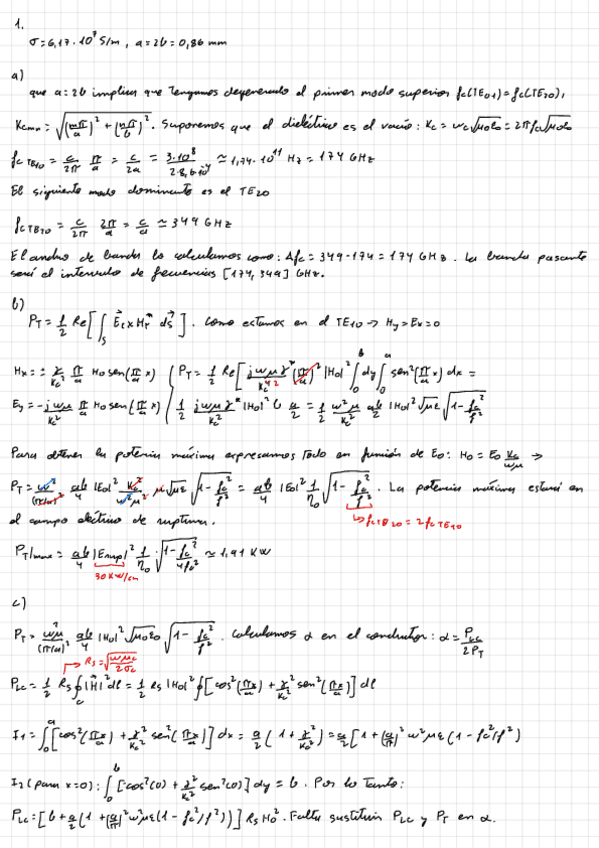 1.
σ = 6,17·10⁷ S/m, a = 2b = 0,86 mm
a)
que a = 2b implica que tengamos degenerado el primer modo superior fc(TE01) = fc(TE20),
Kcmn = √((mπ/a)² + (nπ/b)²). Suponemos que el dieléctrico es el vacío: Kc = wc√μ0ε0 = 2πfc√μ0ε0
fcTE10 = c/2π π/a = c/2a = 3·10⁸/2·8,6·10⁻⁴ ≈ 1,74·10¹¹ Hz = 174 GHz
El siguiente modo dominante es el TE20
fcTE20 = c/2π 2π/a = c/a ≃ 349 GHz
El ancho de banda lo calculamos como: Δfc = 349 - 174 = 174 GHz. La banda pasante
será el intervalo de frecuencias [174, 349] GHz.
b)
PT = 1/2 Re[∫s E⃗t x H⃗t* dS⃗]. Como estamos en el TE10 → Hy = Ex = 0
Hx = ± γ/Kc² π/a H0 sen(π/a x) { PT = 1/2 Re[jwμγ*/Kc⁴² (π/a)² |H0|² ∫0b dy ∫0a sen²(π/a x) dx =
Ey = -jwμ/Kc² π/a H0 sen(π/a x) { 1/2 jwμγ*/Kc² |H0|² b a/2 = 1/2 w²μ/Kc² ab/2 |H0|² √με √1-fc²/f²
Para obtener la potencia máxima expresamos todo en función de E0: H0 = E0 Kc/wμ →
PT = w²/(π/a)² ab/4 |E0|² Kc²/w²μ² μ√με √1-fc²/f² = ab/4 |E0|² 1/η0 √1-fc²/f². La potencia máxima estará en
el campo eléctrico de ruptura. ↳ fcTE20 = 2fcTE10
PT|max = ab/4 |Erup|² 1/η0 · √1-fc²/4fc² ≃ 1,91 KW
30KW/cm
c)
PT = w²μ/(π/a)² ab/4 |H0|² √μ0ε0 √1-fc²/f². Calculamos α en el conductor: α = PLc/2PT
→ Rs = √wμc/2σc
PLc = 1/2 Rs∮c |H⃗|² dl = 1/2 Rs |H0|² ∮[cos²(πx/a) + γ²/Kc² sen²(πx/a)] dl
I1 = ∫0a [cos²(πx/a) + γ²/Kc² sen²(πx/a)] dx = a/2 (1 + γ²/Kc²) = a/2 [1 + (a/π)² w²με (1 - fc²/f²)
I2 (para x=0): ∫0b [cos²(0) + γ²/Kc² sen²(0)] dy = b. Por lo tanto:
PLc = [b + a/2 (1 + (a/π)² w²με(1 - fc²/f²))] Rs H0². Falta sustituir PLc y PT en α.